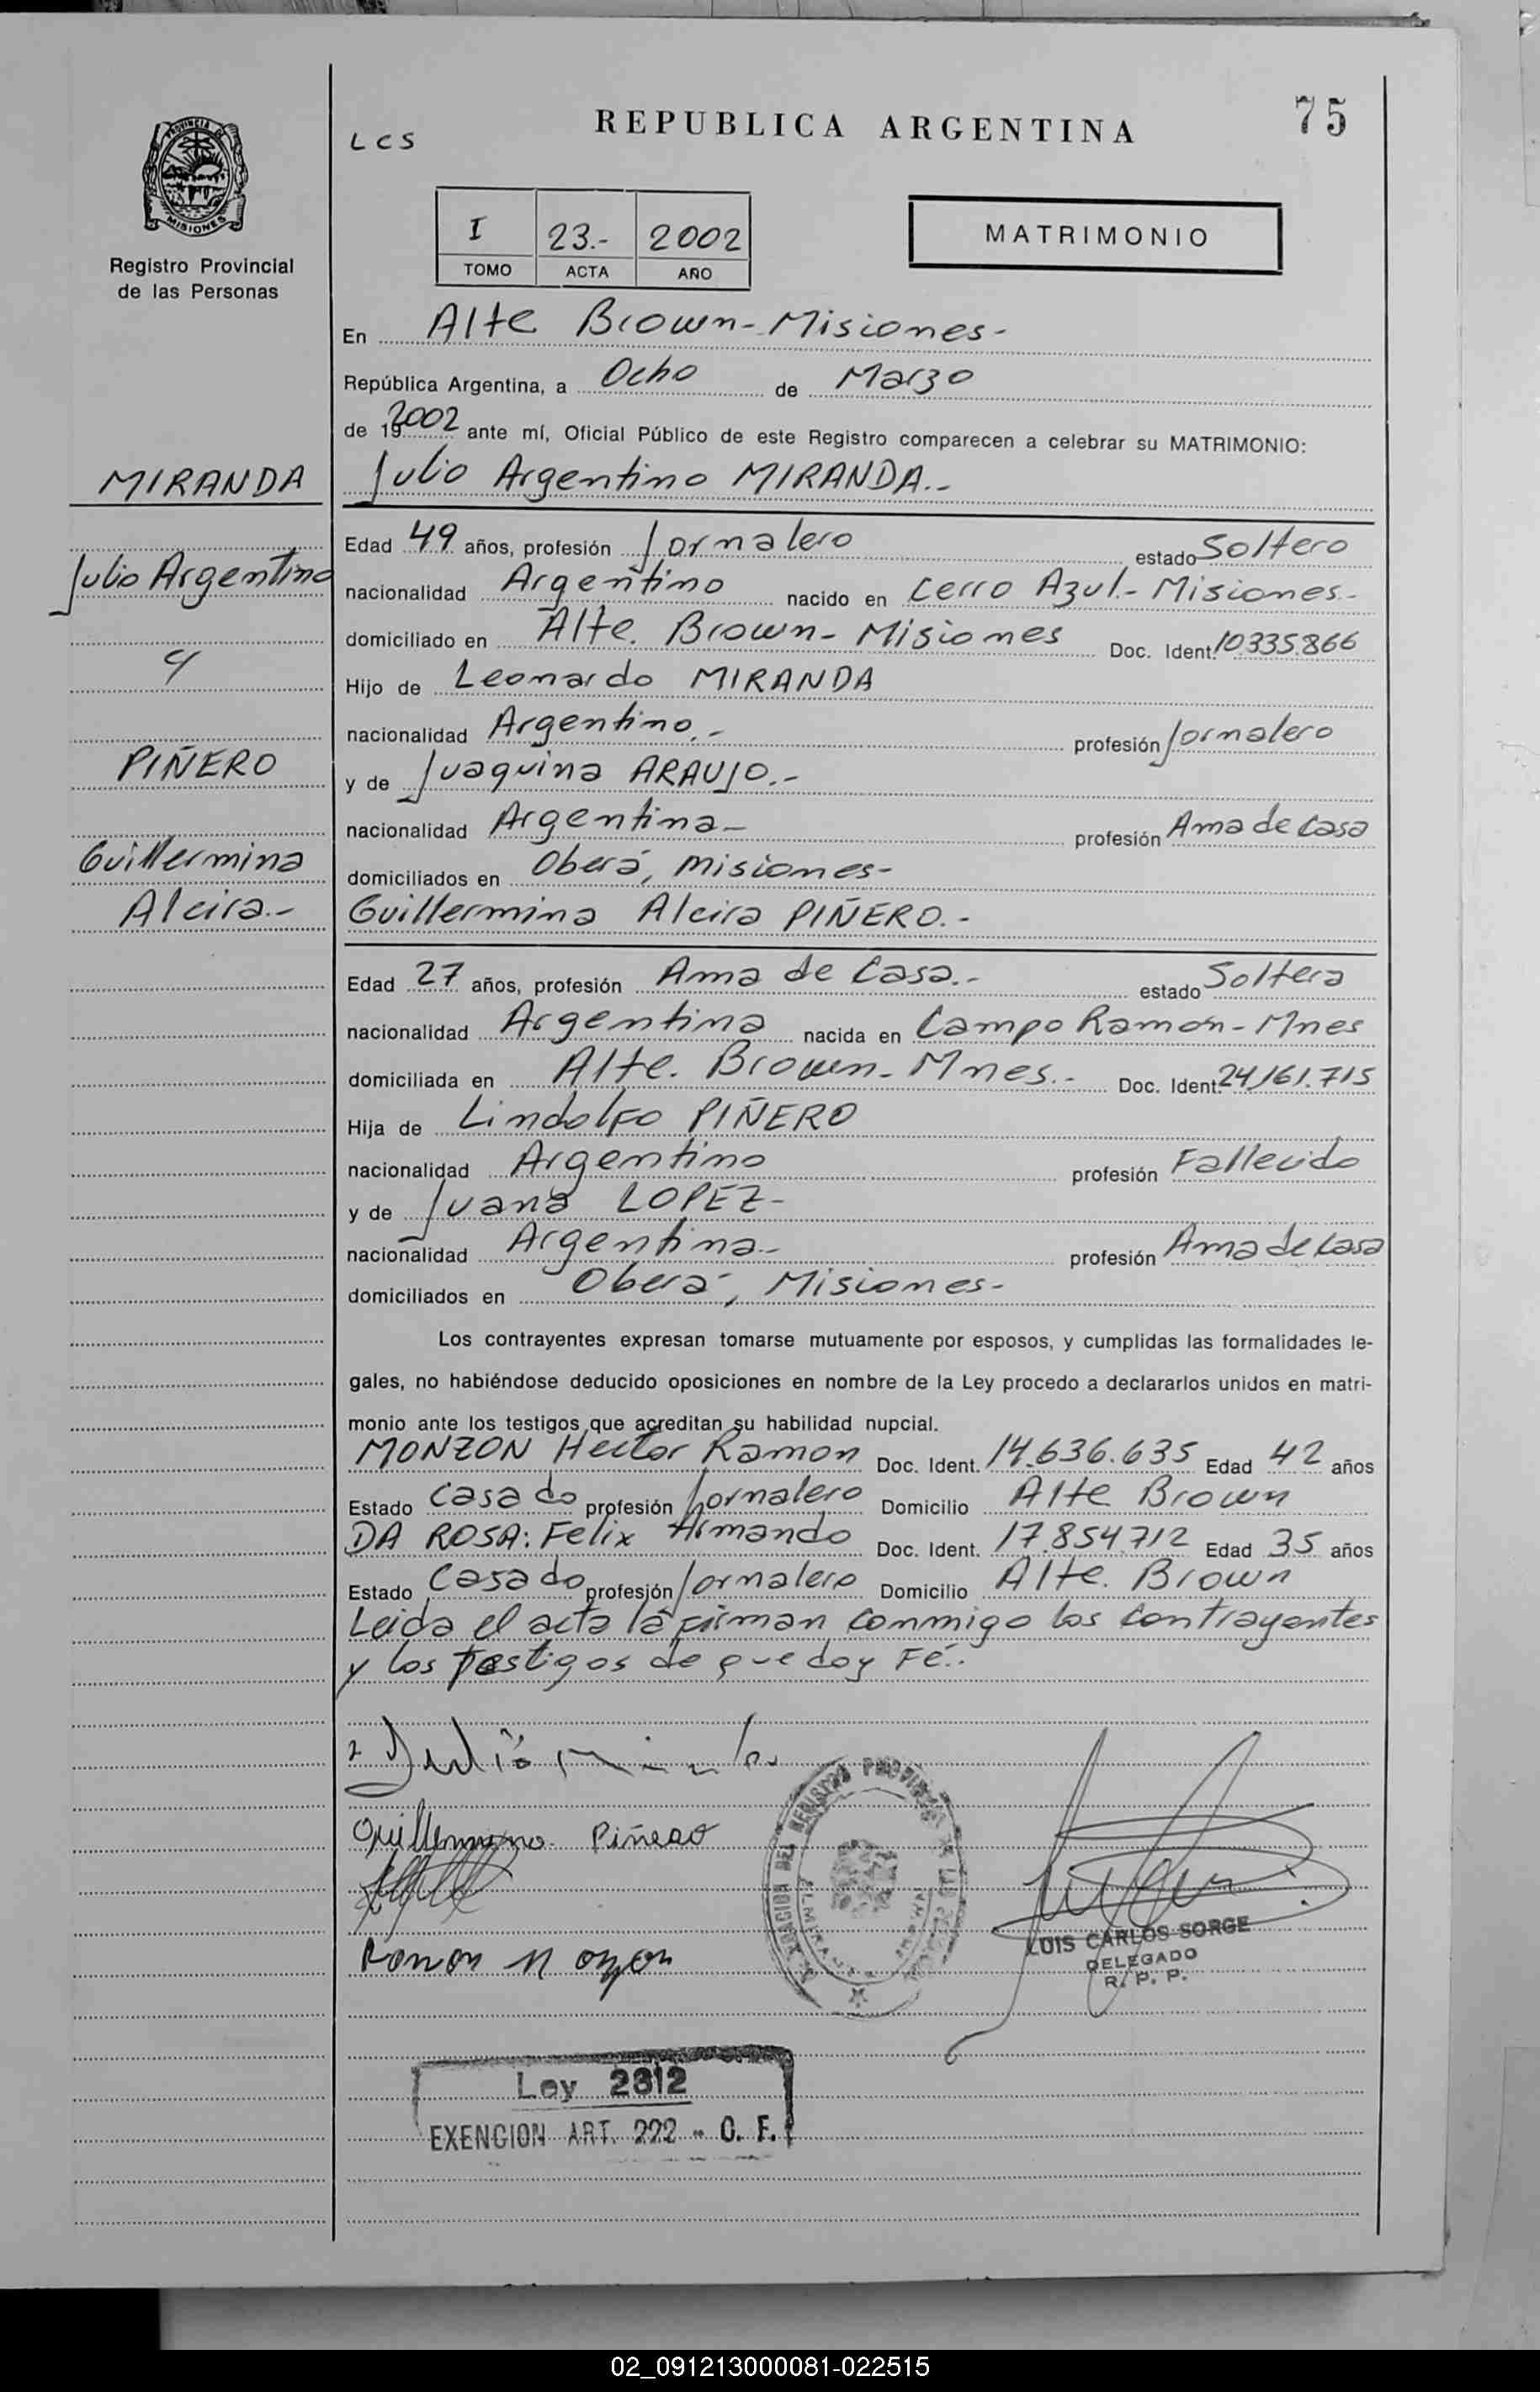 REPUBLICA ARGENTINA
75
LCS
PROVINCIA DE
MISIONES
Registro Provincial
de las Personas
I 23.- 2002
TOMO ACTA AÑO
MATRIMONIO
En Alte Brown-Misiones-
República Argentina, a Ocho de Marzo
de 19 2002 ante mí, Oficial Público de este Registro comparecen a celebrar su MATRIMONIO:
MIRANDA
Julio Argentino MIRANDA.-
Edad 49 años, profesión Jornalero estado Soltero
Julio Argentino
nacionalidad Argentino nacido en Cerro Azul.- Misiones-
domiciliado en Alte. Brown- Misiones Doc. Ident. 10335.866
y
Hijo de Leonardo MIRANDA
nacionalidad Argentino.- profesión Jornalero
PIÑERO
y de Juaquina ARAUJO.-
nacionalidad Argentina- profesión Ama de Casa
Guillermina
domiciliados en Oberá, Misiones-
Alcira.-
Guillermina Alcira PIÑERO.-
Edad 27 años, profesión Ama de Casa.- estado Soltera
nacionalidad Argentina nacida en Campo Ramón-Mnes
domiciliada en Alte. Brown- Mnes.- Doc. Ident. 24.161.715
Hija de Lindolfo PIÑERO
nacionalidad Argentino profesión Fallecido
y de Juana LOPEZ-
nacionalidad Argentina- profesión Ama de Casa
domiciliados en Oberá, Misiones-
Los contrayentes expresan tomarse mutuamente por esposos, y cumplidas las formalidades le-
gales, no habiéndose deducido oposiciones en nombre de la Ley procedo a declararlos unidos en matri-
monio ante los testigos que acreditan su habilidad nupcial.
MONZON Hector Ramon Doc. Ident. 14.636.635 Edad 42 años
Estado Casado profesión Jornalero Domicilio Alte Brown
DA ROSA: Felix Armando Doc. Ident. 17.854.712 Edad 35 años
Estado Casado profesión Jornalero Domicilio Alte. Brown
Leida el acta la firman conmmigo los contrayentes
y los testigos de que doy Fé.-
Julio
Guillermina Piñero
Ramon
LUIS CARLOS SORGE
DELEGADO
R. P. P.
Ley 2312
EXENCION ART. 222 - C. F.
02_091213000081-022515